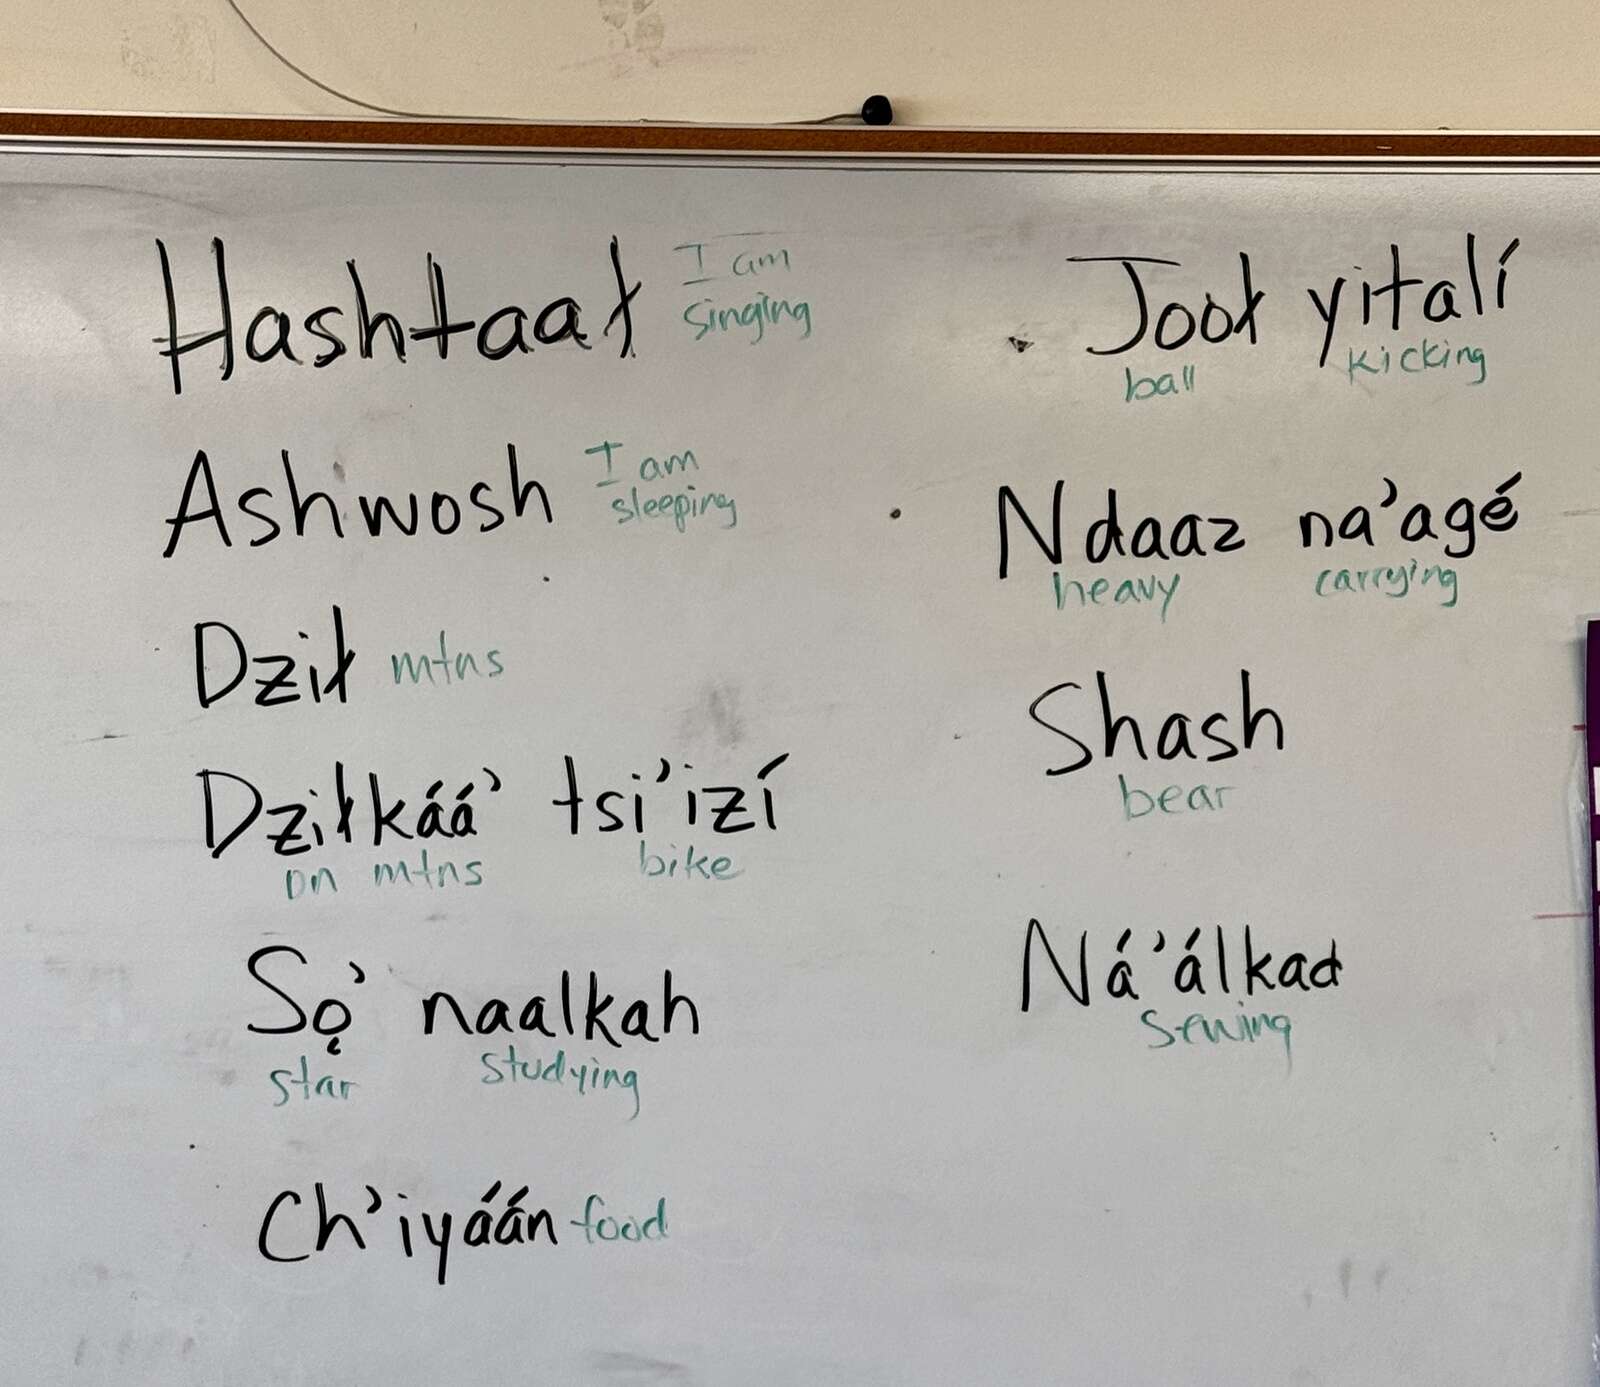 Hashtaał I am
singing
Ashwosh I am
sleeping
Dził mtns
Dziłkáá’ tsi’izí
on mtns bike
Sǫ’ naalkah
star studying
Ch’iyáán food
Jooł yitalí
ball kicking
Ndaaz na’agé
heavy carrying
Shash
bear
Ná’álkad
sewing